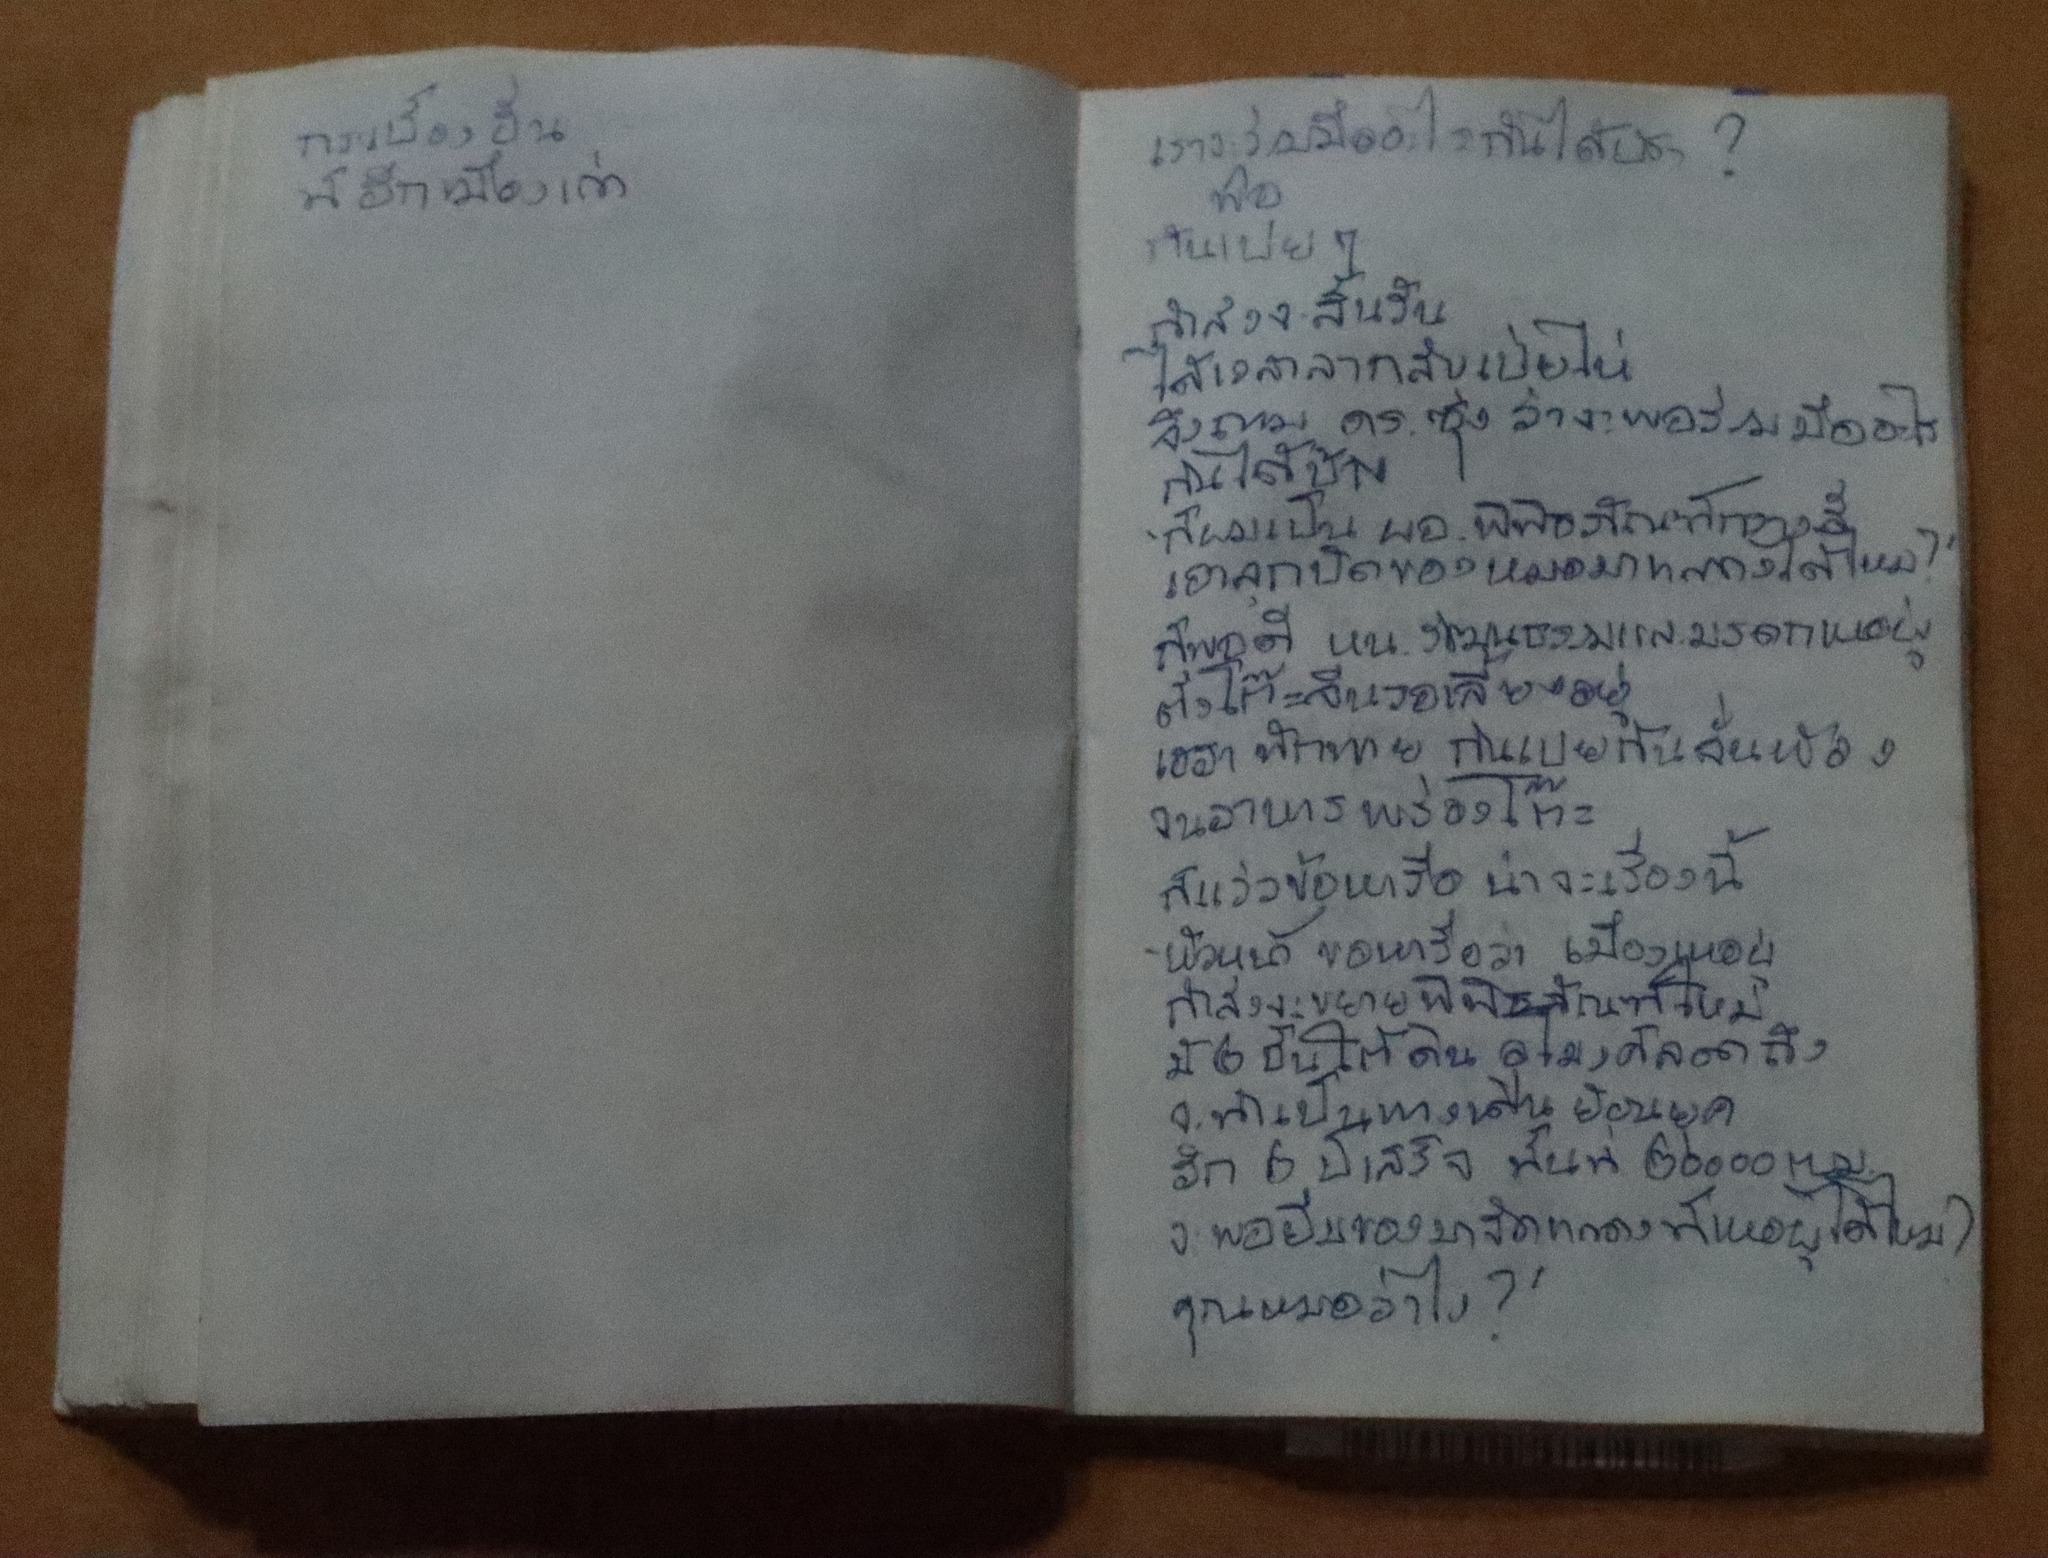 กระเบื้องอื่น
ที่ตึกเมืองเก่า
เราจะร่วมมืออะไรกันได้บ้าง ?
หรือ
กันเปย ๆ
กำลังจะสิ้นวัน
ได้เวลาลากลับเป่ยไห่
จึงถาม ดร.ซุ่ง ว่าจะพอร่วมมืออะไร
กันได้บ้าง
- ก็ผมเป็น ผอ.พิพิธภัณฑ์กวางสี
เอาลูกปัดของหมอมาแสดงได้ไหม?'
ก็พอดี หน.วัฒนธรรมและมรดกเหอผู่
ตั้งโต๊ะจีนรอเลี้ยงอยู่
เฮฮา ทักทาย กันเปยกันลั่นห้อง
จนอาหารพร่องโต๊ะ
ก็แว่วข้อหารือ น่าจะเรื่องนี้
- หัวหน้า ขอหารือว่า เมืองเหอผู่
กำลังจะขยายพิพิธภัณฑ์ใหม่
มี ๒ ชั้นใต้ดิน อุโมงค์ลอดถึง
จะทำเป็นทางเดิน ย้อนยุค
อีก ๒ ปีเสร็จ พื้นที่ ๒๐๐๐๐ ตรม.
จะพอยืมของมาจัดแสดงที่เหอผู่ได้ไหม?
คุณหมอว่าไง?'